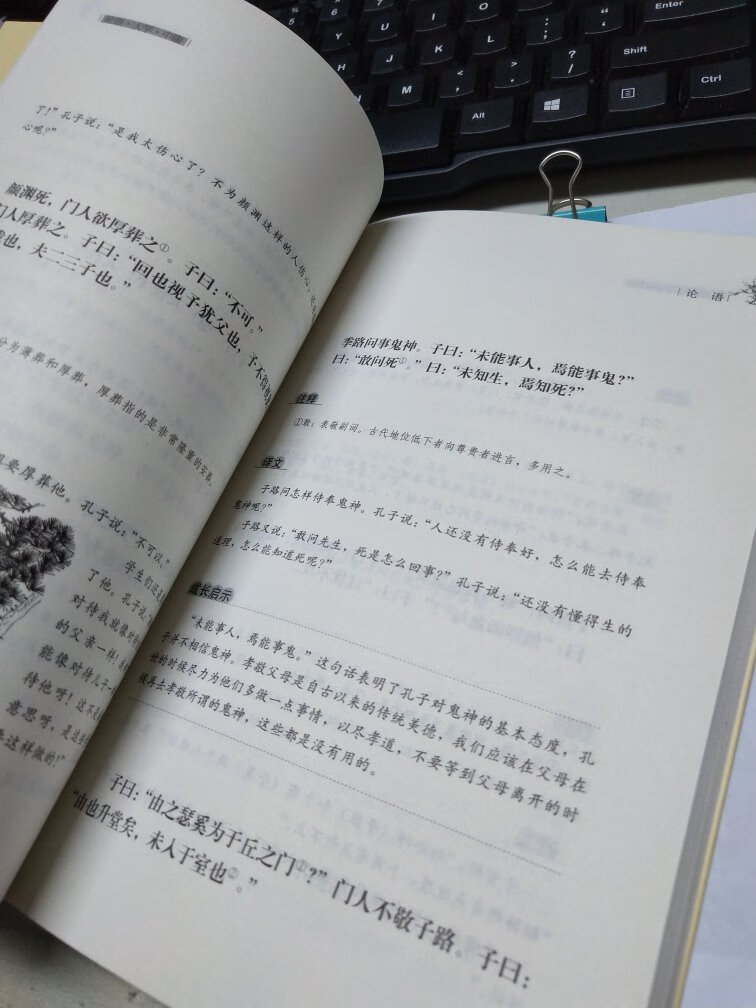 论语·大学·中庸
了！”孔子说：“是我太伤心了？不为颜渊这样的人伤心，
心呢？”
颜渊死，门人欲厚葬之①。子曰：“不可。”
门人厚葬之。子曰：“回也视予犹父也，予不得视
也，夫二三子也。”
分为薄葬和厚葬，厚葬指的是非常隆重的安葬。
要厚葬他。孔子说：“不可以。”
学生们还是
了他。孔子说：“
对待我就像对待
的父亲一样！
能像对待儿子一
待他呀！这不是
意思呀，是这些
这样做的！”
论语
季路问事鬼神。子曰：“未能事人，焉能事鬼？”
曰：“敢问死①。”曰：“未知生，焉知死？”
注释
①敢：表敬副词。古代地位低下者向尊贵者进言，多用之。
译文
子路问怎样侍奉鬼神。孔子说：“人还没有侍奉好，怎么能去侍奉
鬼神呢？”
子路又说：“敢问先生，死是怎么回事？”孔子说：“还没有懂得生的
道理，怎么能知道死呢？”
成长启示
“未能事人，焉能事鬼。”这句话表明了孔子对鬼神的基本态度，孔
子并不相信鬼神。孝敬父母是自古以来的传统美德，我们应该在父母在
世的时候尽力为他们多做一点事情，以尽孝道，不要等到父母离开的时
候再去孝敬所谓的鬼神，这些都是没有用的。
子曰：“由之瑟奚为于丘之门①？”门人不敬子路。子曰：
“由也升堂矣，未入于室也②。”
Enter
Shift
Alt
Ctrl